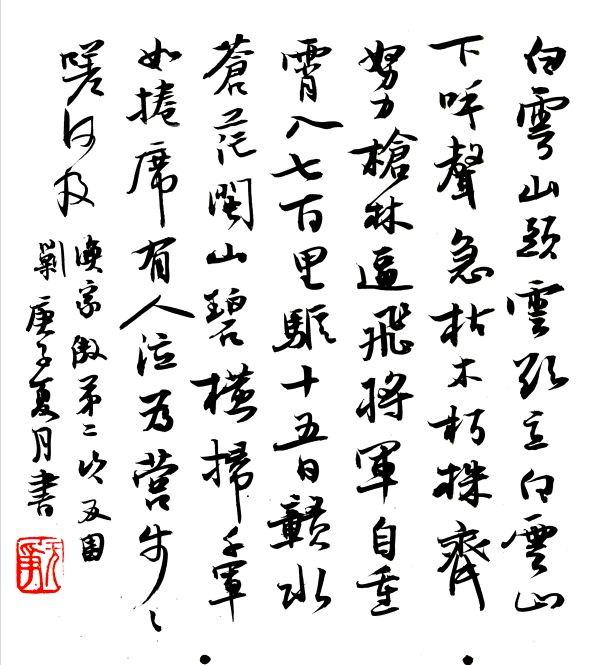 白雲山頭雲欲立白雲山
下呼聲急枯木朽株齊
努力槍林逼飛將軍自重
霄入七百里驅十五日贛水
蒼茫閩山碧橫掃千軍
如捲席有人泣為營步々
嗟何及
漁家傲第二次反圍
剿庚子夏月書